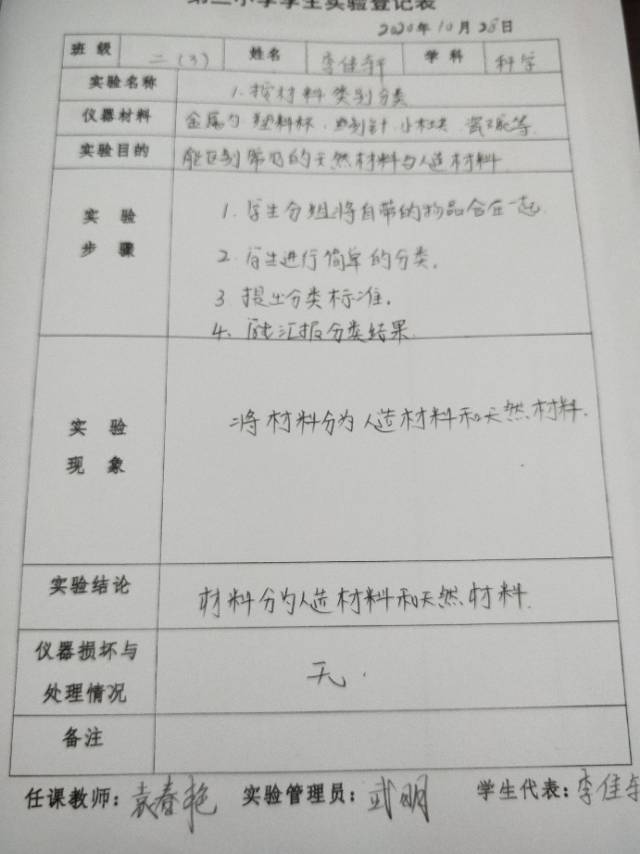 第二小学学生实验登记表
2020年10月28日
班级 二(3) 姓名 李佳轩 学科 科学
实验名称 1.按材料类别分类
仪器材料 金属勺 塑料杯、回别针 小木块 瓷碗等
实验目的 能区别常见的天然材料与人造材料
实验步骤
1. 学生分组将自带的物品合在一起
2. 学生进行简单的分类。
3 提出分类标准。
4. 汇报分类结果
实验现象 将材料分为人造材料和天然材料.
实验结论 材料分为人造材料和天然材料.
仪器损坏与处理情况 无.
备注
任课教师:袁春艳 实验管理员:武明 学生代表:李佳轩